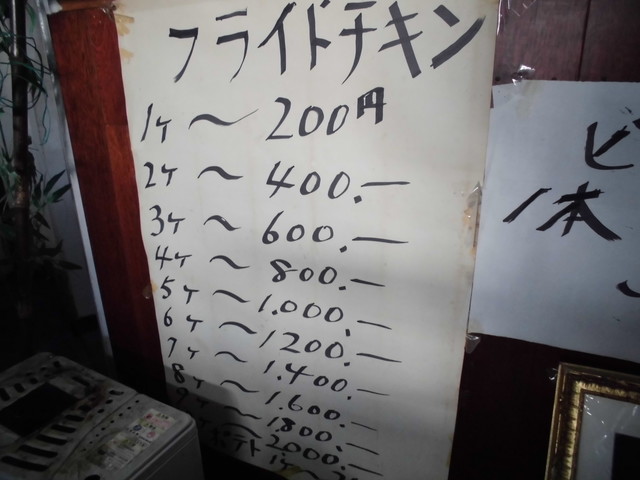 フライドチキン
1ヶ〜200円
2ヶ〜400.—
3ヶ〜600.—
4ヶ〜800.—
5ヶ〜1.000.—
6ヶ〜1200.—
7ヶ〜1.400.—
8ヶ〜1.600.—
9ヶ〜1800.—
〜2000.—
ポテト 1ヶ〜
ビ
1本